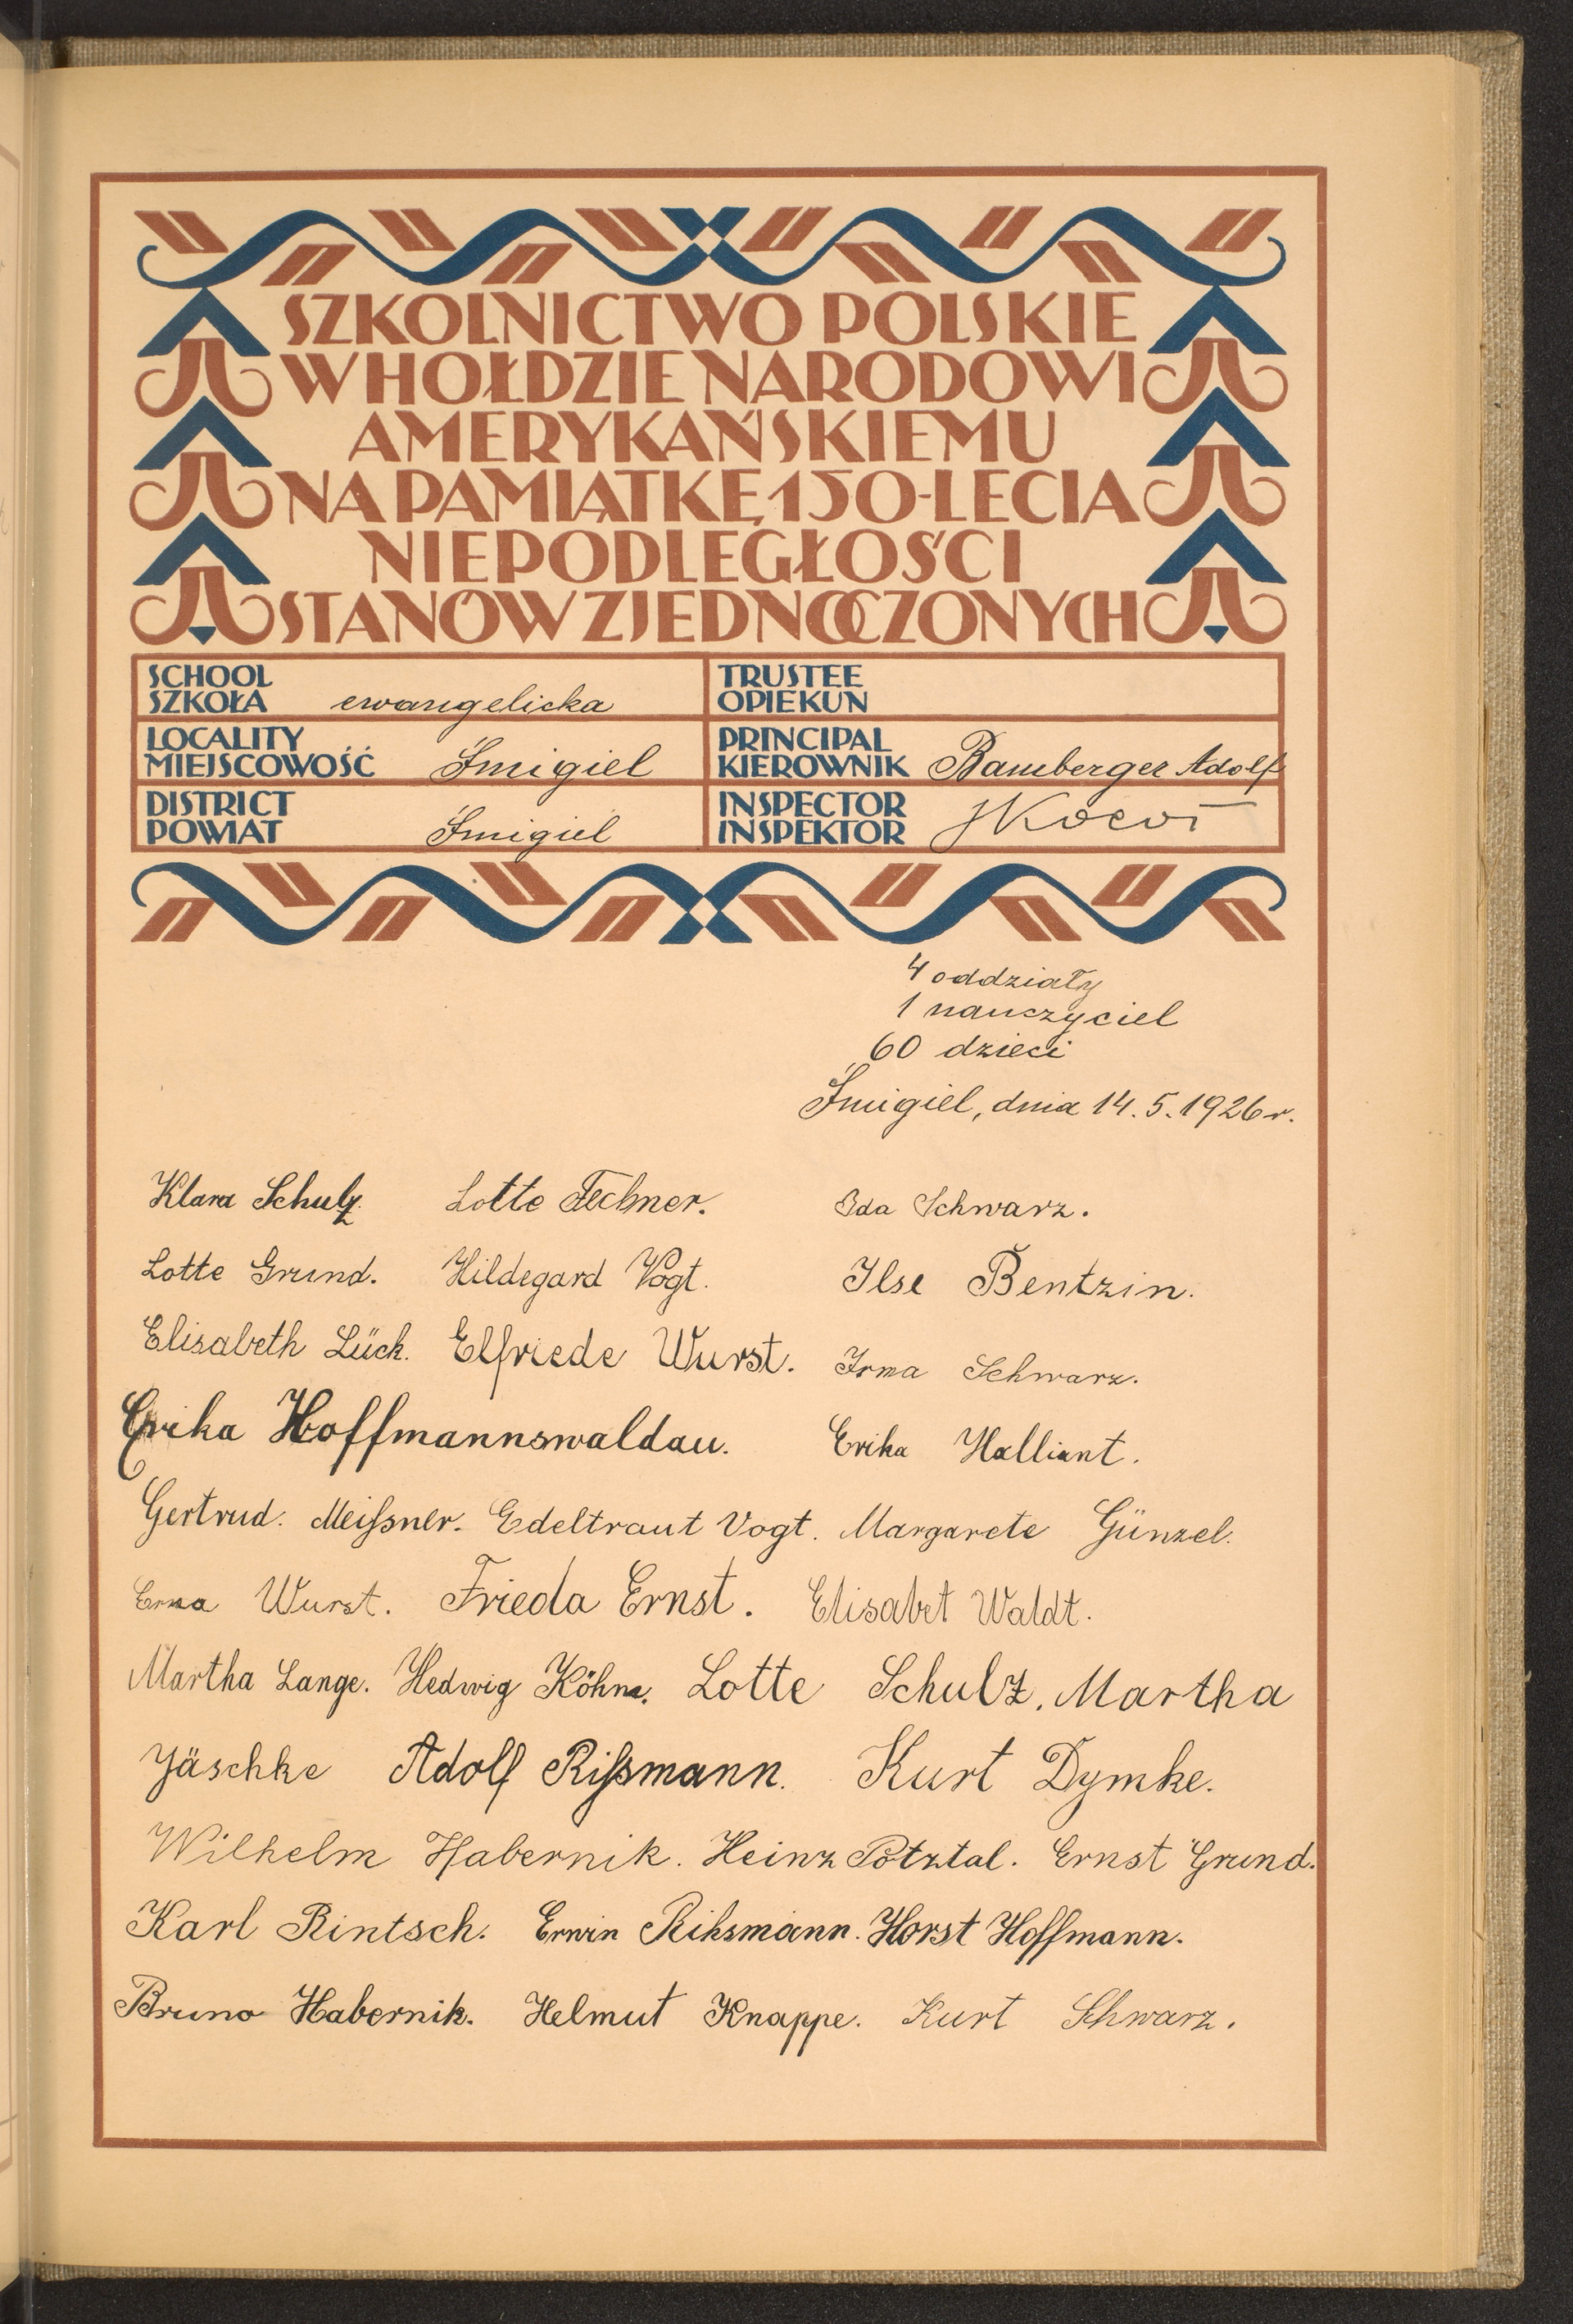 SZKOLNICTWO POLSKIE
W HOŁDZIE NARODOWI
AMERYKAŃSKIEMU
NA PAMIĄTKĘ 150-LECIA
NIEPODLEGŁOŚCI
STANÓW ZJEDNOCZONYCH
SCHOOL
SZKOŁA ewangelicka
TRUSTEE
OPIEKUN
LOCALITY
MIEJSCOWOŚĆ Śmigiel
PRINCIPAL
KIEROWNIK Bamberger Adolf
DISTRICT
POWIAT Śmigiel
INSPECTOR
INSPEKTOR
4 oddziały
1 nauczyciel
60 dzieci
Śmigiel, dnia 14.5.1926 r.
Klara Schulz Lotte Fechner. Ida Schwarz.
Lotte Grund. Hildegard Vogt. Ilse Bentzin.
Elisabeth Lück. Elfriede Wurst. Irma Schwarz.
Erika Hoffmannswaldau. Erika Halliant.
Gertrud. Meißner. Edeltraut Vogt. Margarete Günzel.
Erna Wurst. Frieda Ernst. Elisabet Waldt.
Martha Lange. Hedwig Köhn. Lotte Schulz. Martha
Jäschke Adolf Rißmann. Kurt Dymke.
Wilhelm Habernik. Heinz Potztal. Ernst Grund.
Karl Rintsch. Erwin Rihsmann. Horst Hoffmann.
Bruno Habernik. Helmut Knappe. Kurt Schwarz.